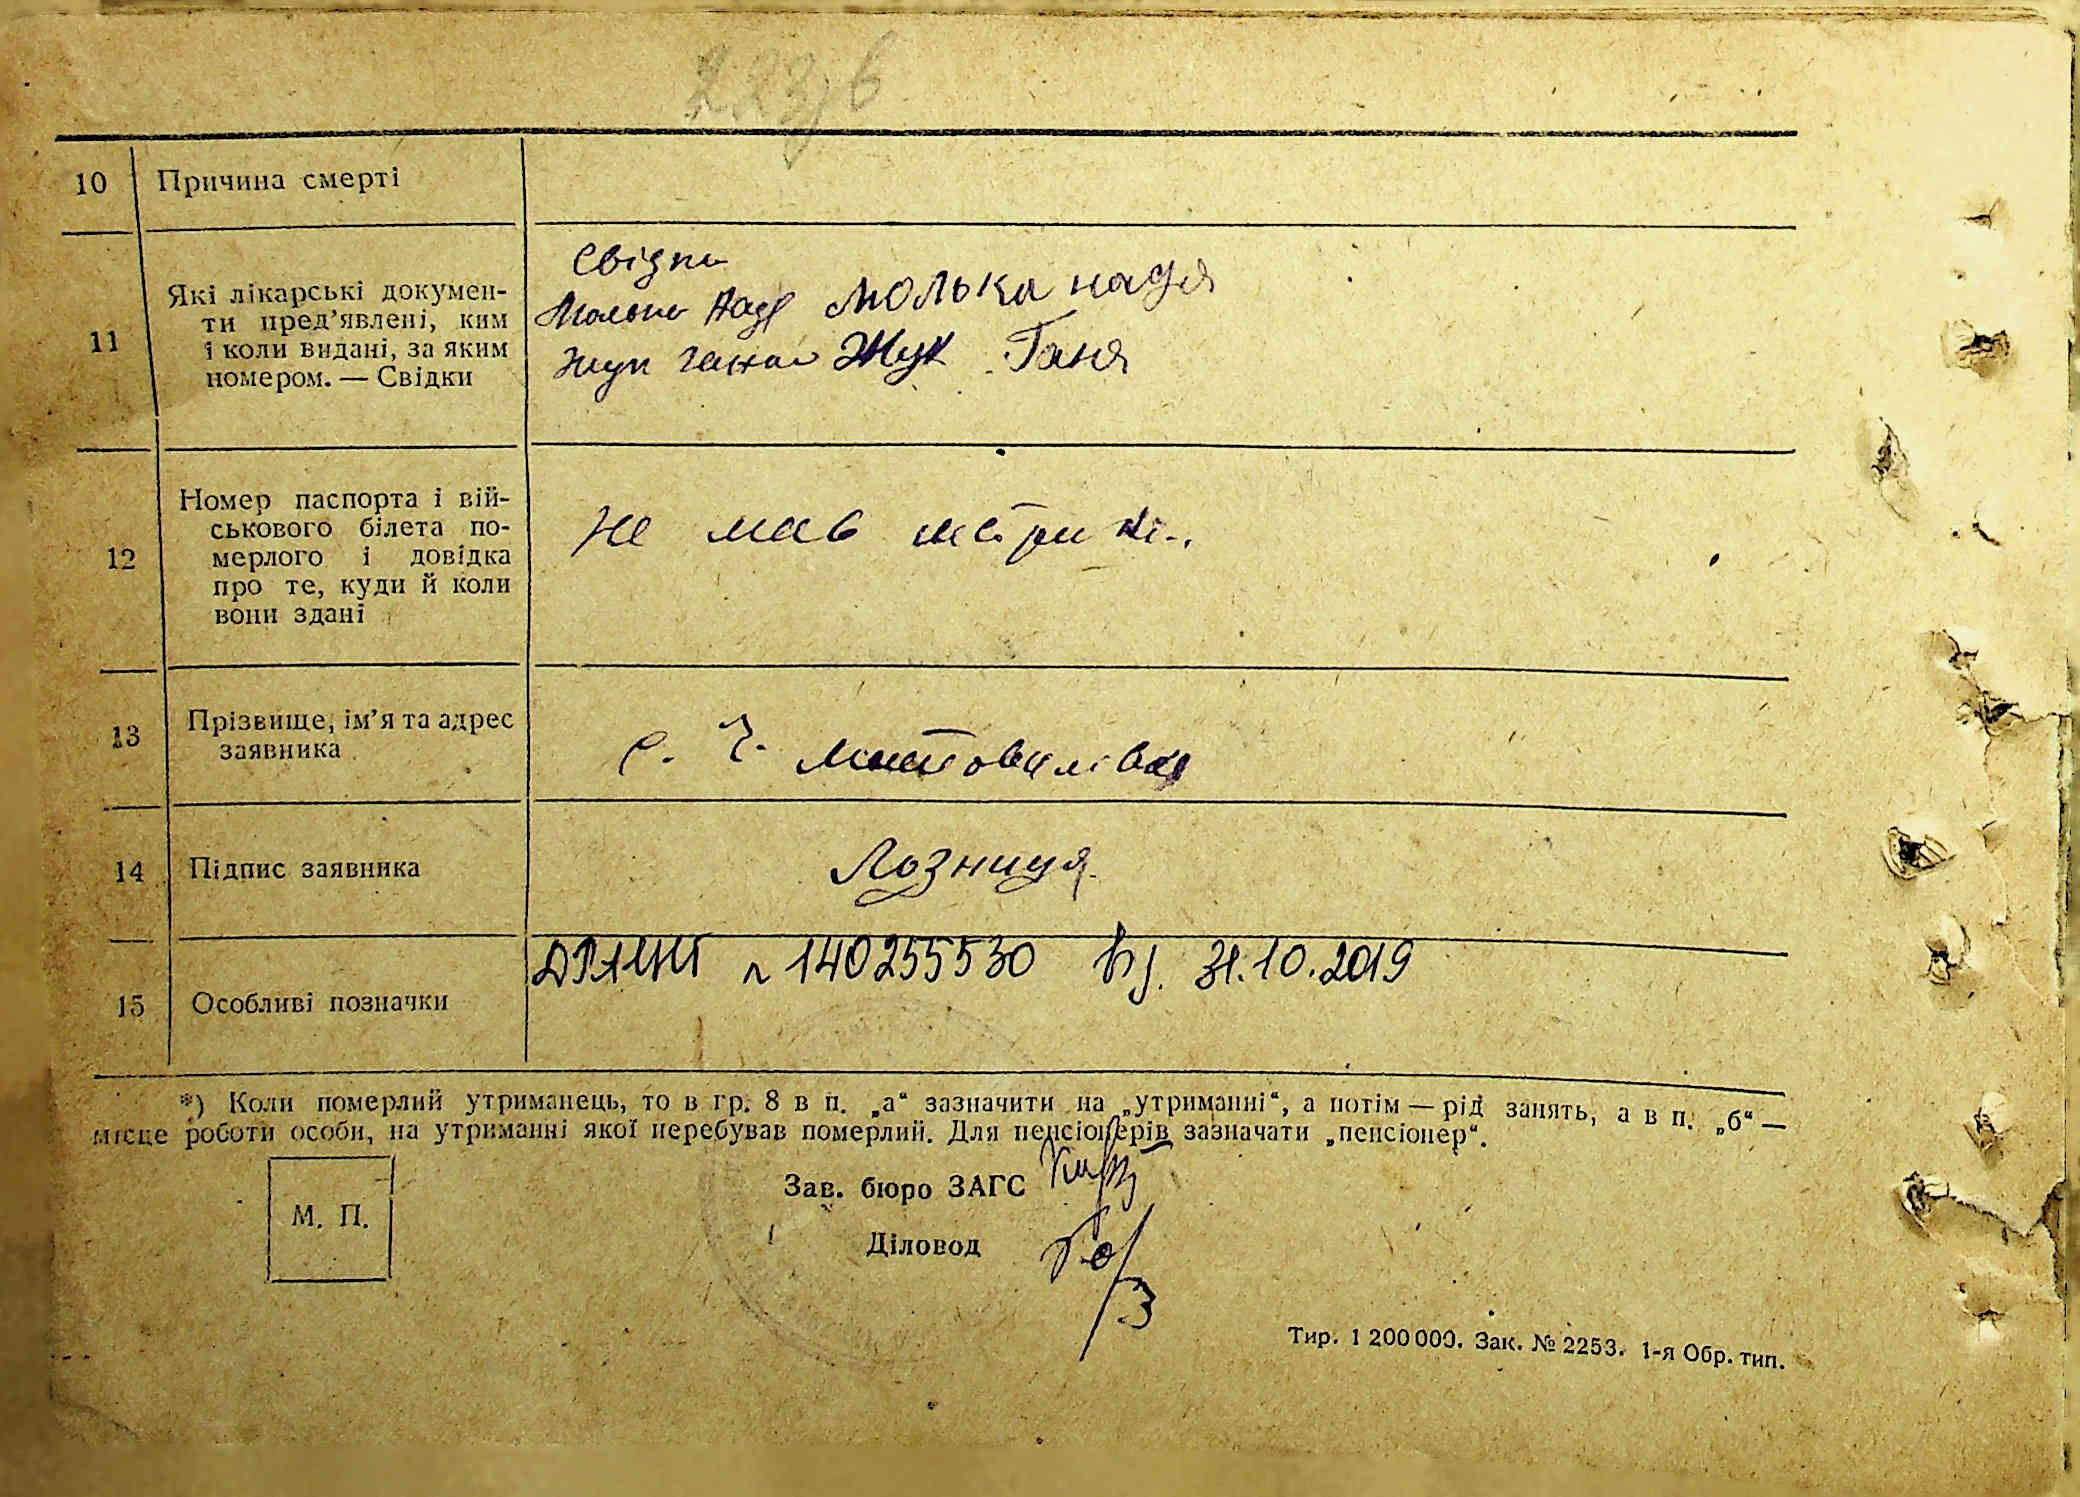 223/6
10 Причина смерті
11 Які лікарські докумен-
ти пред'явлені, ким
і коли видані, за яким
номером. — Свідки
свідки
Молька Надя Молька надя
Жук ганна Жук Ганя
12 Номер паспорта і вій-
ськового білета по-
мерлого і довідка
про те, куди й коли
вони здані
Не мав метрики.
13 Прізвище, ім'я та адрес
заявника
с. Г.
14 Підпис заявника
Лозниця
15 Особливі позначки
ДРАЦСГ № 140255530 від. 31.10.2019
*) Коли померлий утриманець, то в гр. 8 в п. „а“ зазначити на „утриманні“, а потім — рід занять, а в п. „б“ —
місце роботи особи, на утриманні якої перебував померлий. Для пенсіонерів зазначати „пенсіонер“.
М. П.
Зав. бюро ЗАГС
Діловод
Тир. 1 200 000. Зак. № 2253. 1-я Обр. тип.